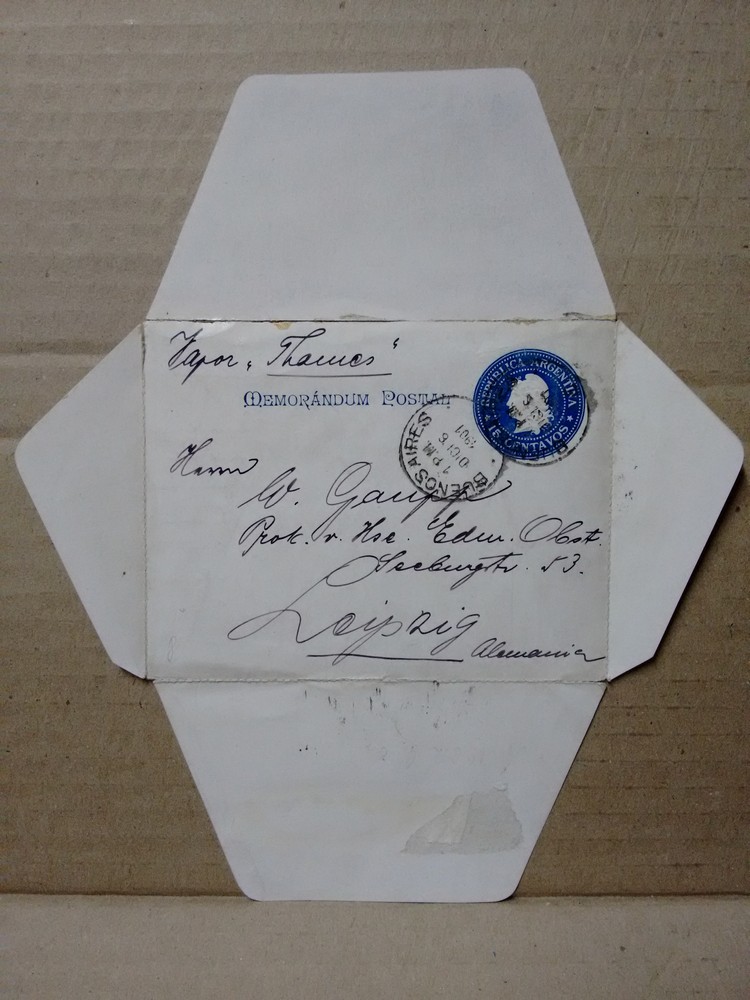 Vapor „Thames"
MEMORÁNDUM POSTAL
REPUBLICA ARGENTINA
15 CENTAVOS
BUENOS AIRES
1 P.M.
DIC 6
1901
Herrn
W. Gaupp
Prok. v. Hse. Edm. Obst.
Seeburgstr. 53.
Leipzig
Alemania